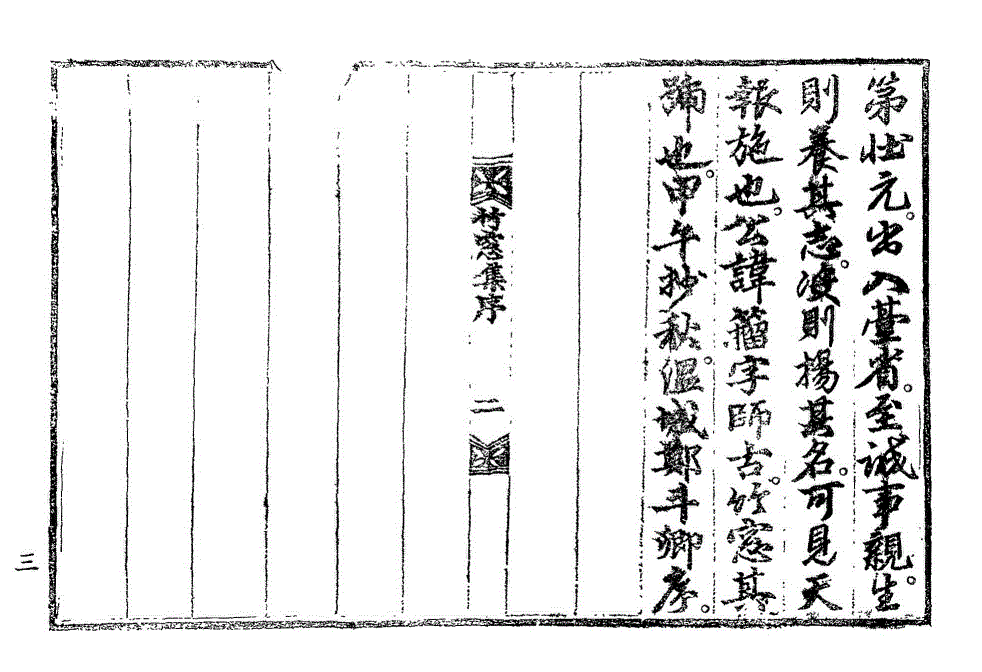 第壯元。出入臺省。至誠事親。生
則養其志。沒則揚其名。可見天
報施也。公諱籀字師古。竹窓其
號也。甲午抄秋。溫城鄭斗卿序。
竹窓集序
二
三